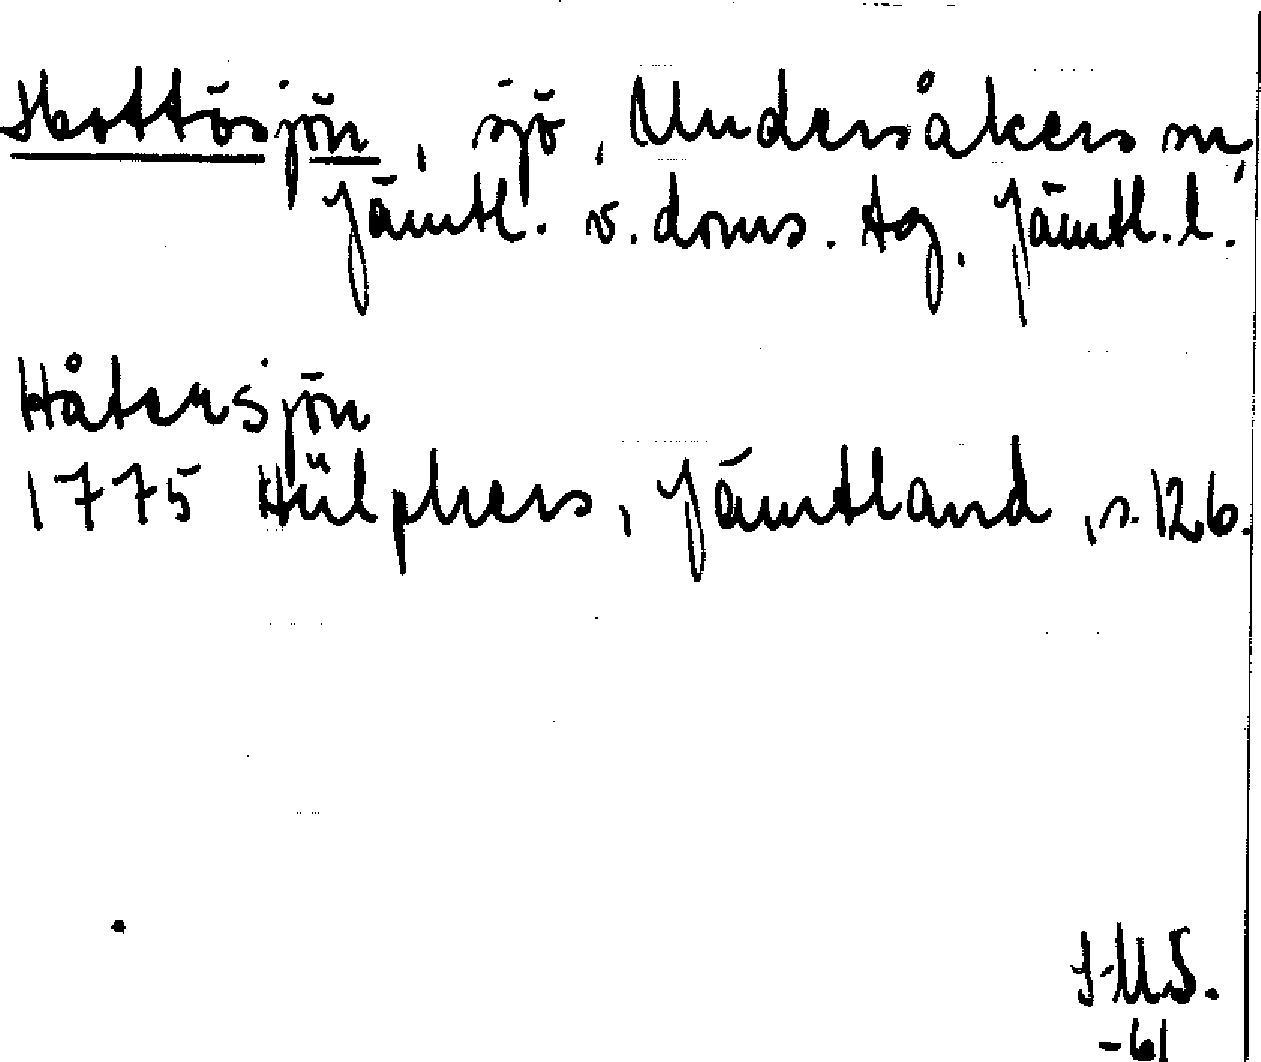 Hottösjön, sjö, Undersåkers sn,
Jämtl. v. doms. tg. Jämtl. l.
Håtensjön
1775 Hülphers, Jämtland, s. 126.
-61